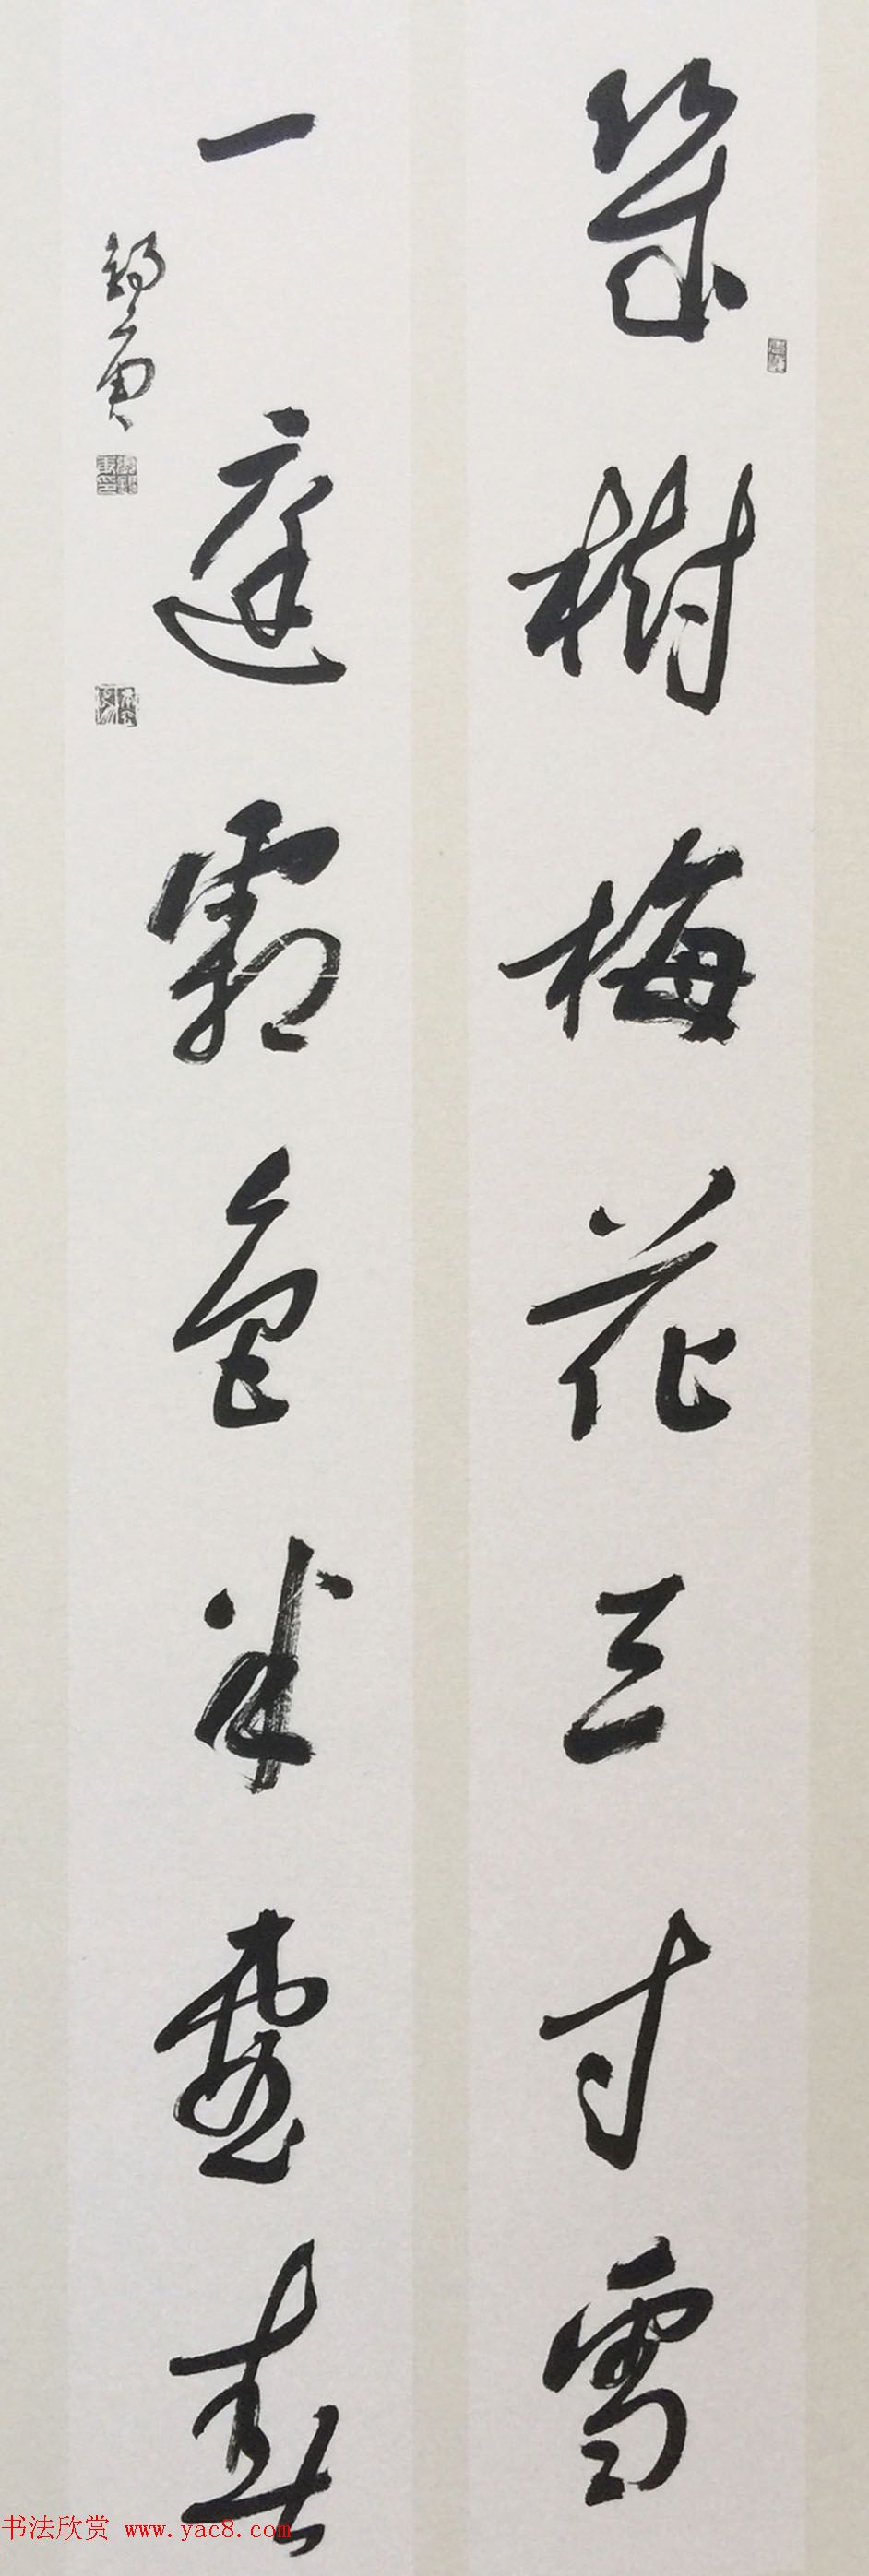 幾樹梅花三寸雪
一庭霜色半春
书法欣赏 www.yac8.com